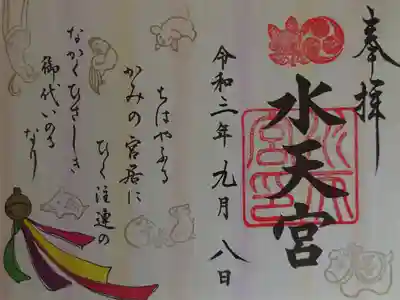 奉拝
水天宮
令和三年九月八日
ちはやふる
かみの宮居に
ひく注連の
なかくひさしき
御代いのる
なり